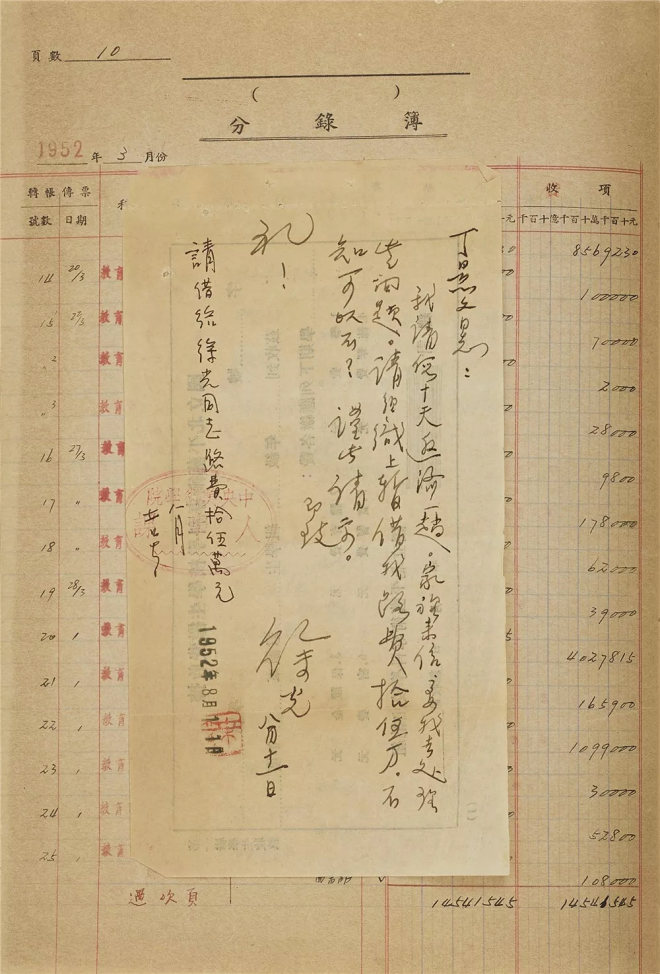 頁數 10
( )
分錄簿
1952年3月份
轉帳傳票
號數 日期
收項
千百十億千百十萬千百十元
丁是杰同志：
我請假十天返濟一趟。家裡來信要我去處理
些問題。請組織上暫借我路費拾伍万。不
知可以否？謹此請示。
即致
禮！
徐光
八月十一日
請借給徐光同志路費拾伍萬元
八月
1952年8月11日
14 20/3 教育 8569230
15 教育 100000
" 2 教育 70000
" 3 教育 2000
16 27/3 教育 28000
17 " 教育 9800
18 " 教育 178000
19 28/3 教育 62000
20 教育 39000
21 教育 4027815
22 教育 165900
23 教育 1099000
24 教育 30000
25 教育 52800
108000
過次頁 14541545 14541545